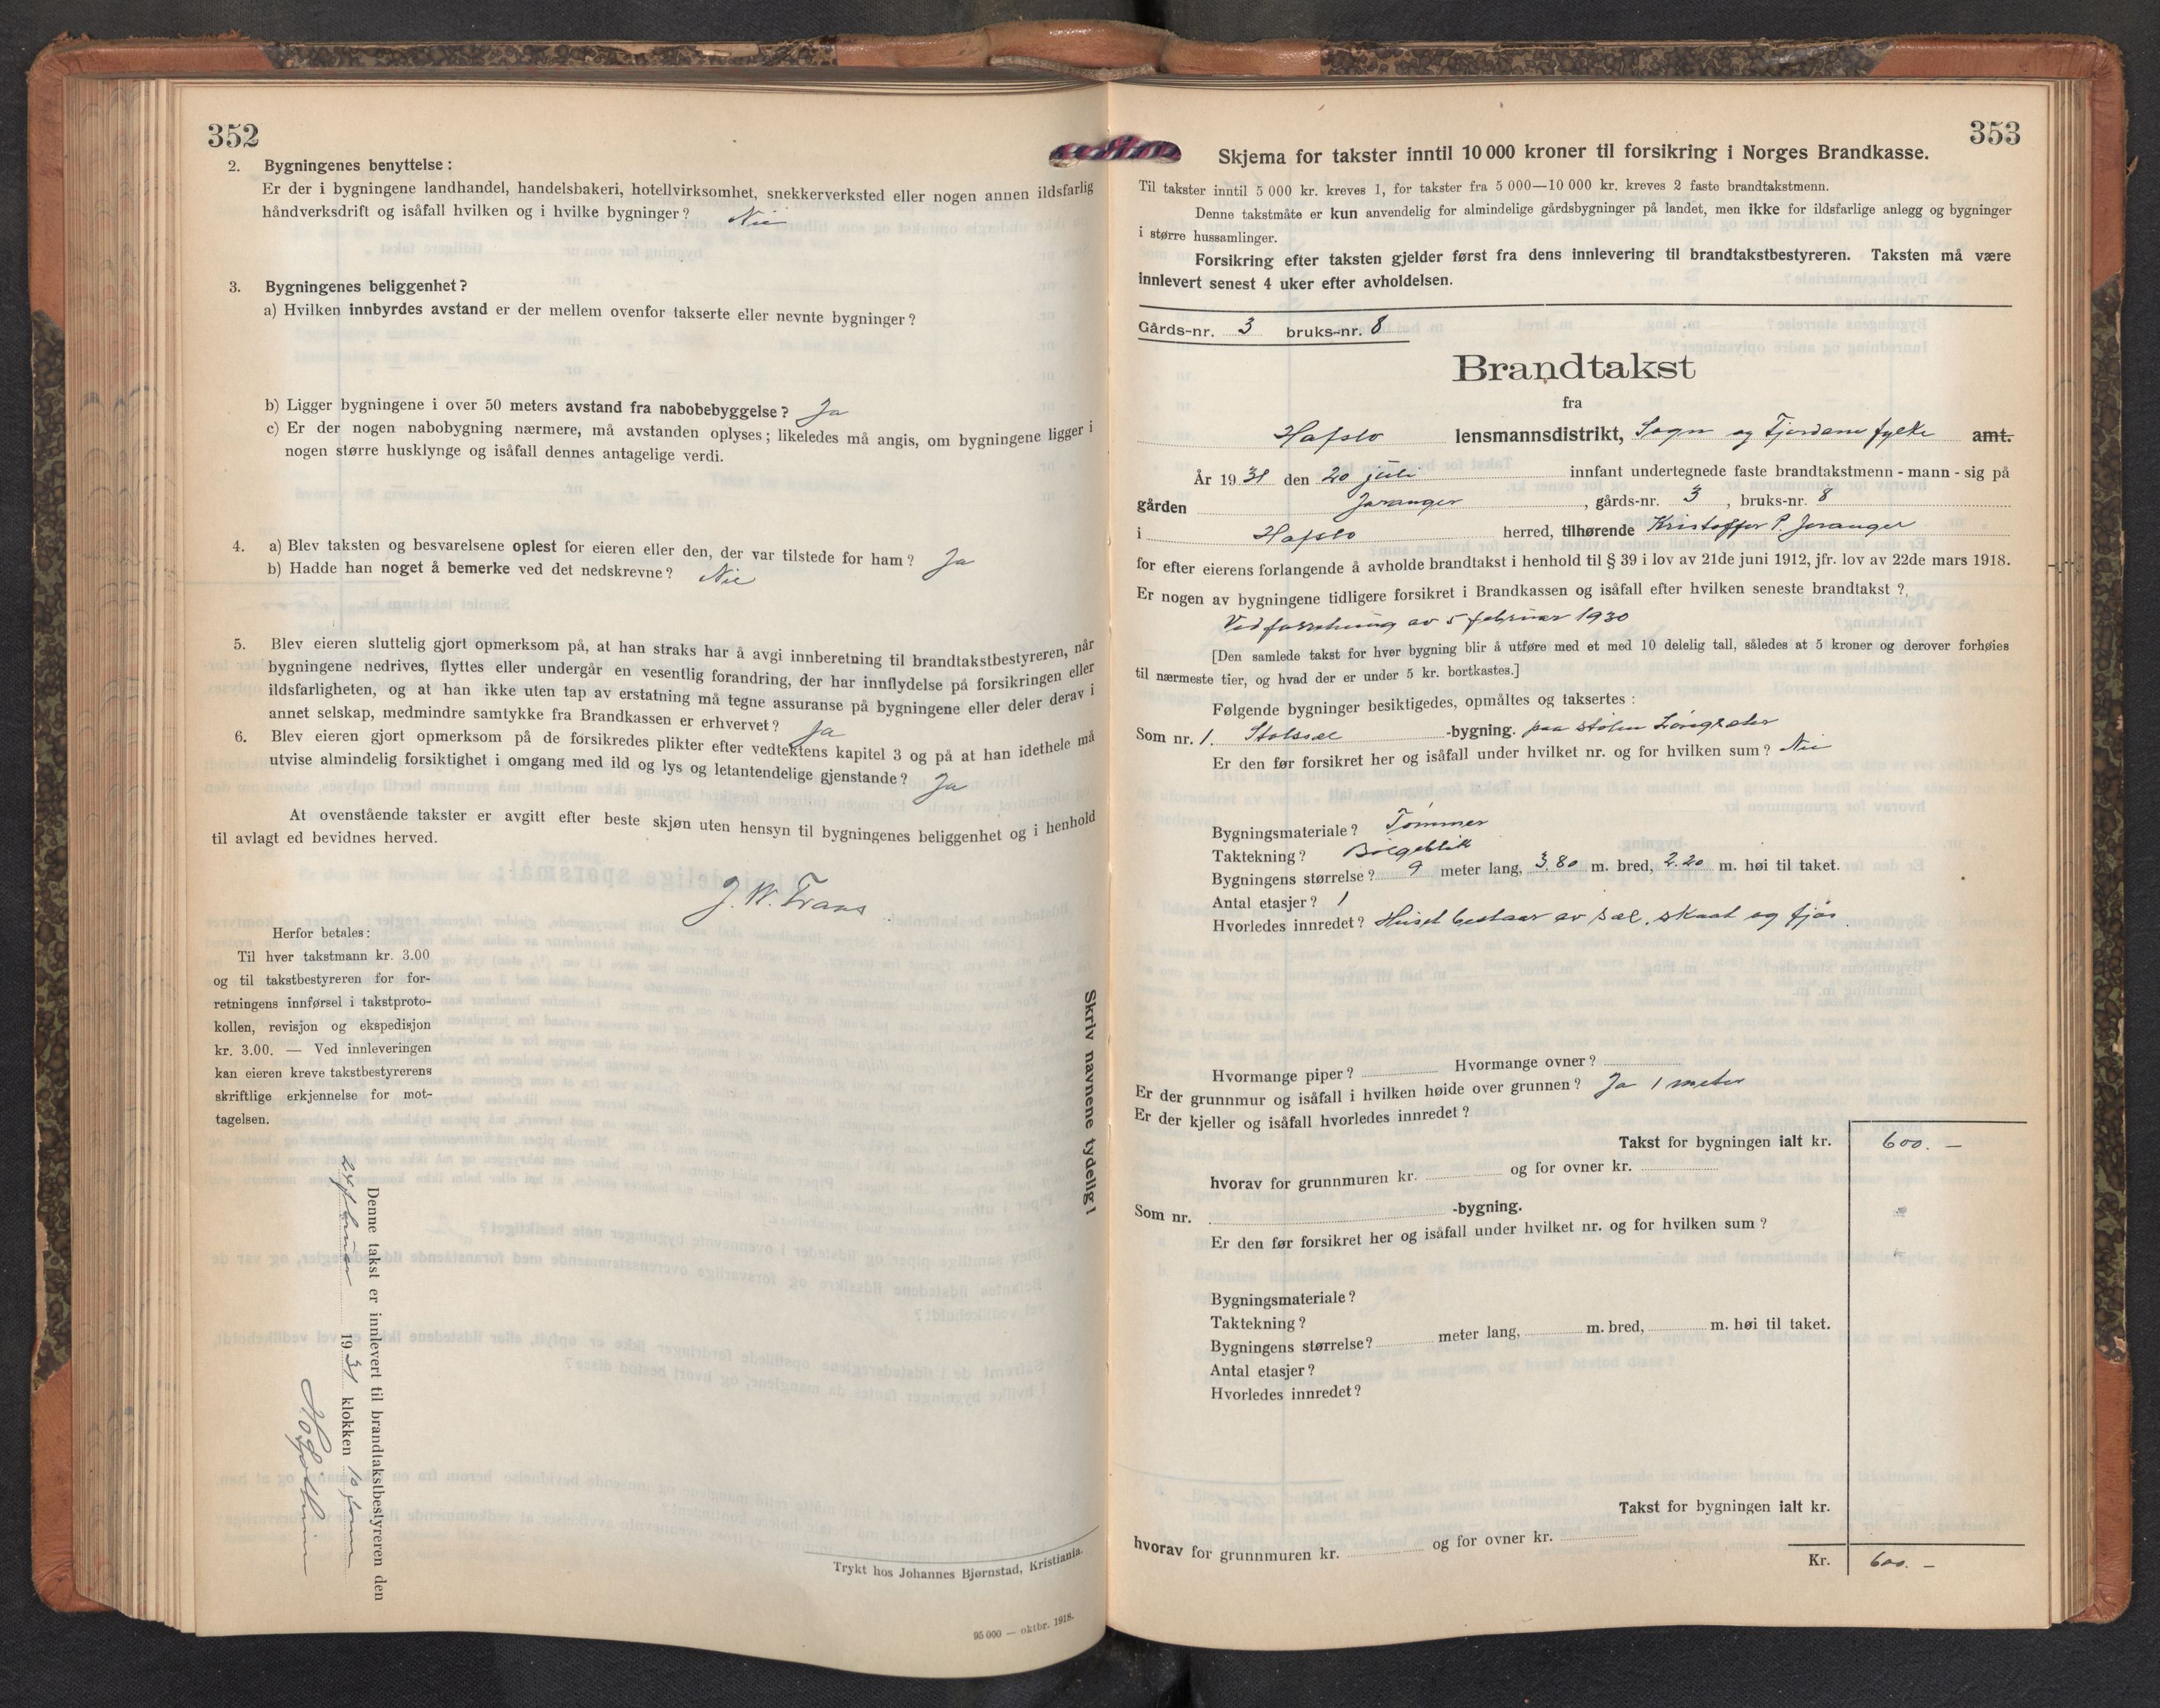 352
2. Bygningenes benyttelse :
Er der i bygningene landhandel, handelsbakeri, hotellvirksomhet, snekkerverksted eller nogen annen ildsfarlig
håndverksdrift og isåfall hvilken og i hvilke bygninger? Nei
3. Bygningenes beliggenhet?
a) Hvilken innbyrdes avstand er der mellem ovenfor takserte eller nevnte bygninger?
b) Ligger bygningene i over 50 meters avstand fra nabobebyggelse? Ja
c) Er der nogen nabobygning nærmere, må avstanden oplyses; likeledes må angis, om bygningene ligger i
nogen større husklynge og isåfall dennes antagelige verdi.
4. a) Blev taksten og besvarelsene oplest for eieren eller den, der var tilstede for ham? Ja
b) Hadde han noget å bemerke ved det nedskrevne? Nei
5. Blev eieren sluttelig gjort opmerksom på, at han straks har å avgi innberetning til brandtakstbestyreren, når
bygningene nedrives, flyttes eller undergår en vesentlig forandring, der har innflydelse på forsikringen eller
ildsfarligheten, og at han ikke uten tap av erstatning må tegne assuranse på bygningene eller deler derav i
annet selskap, medmindre samtykke fra Brandkassen er erhvervet? Ja
6. Blev eieren gjort opmerksom på de forsikredes plikter efter vedtektens kapitel 3 og på at han idethele må
utvise almindelig forsiktighet i omgang med ild og lys og letantendelige gjenstande? Ja
At ovenstående takster er avgitt efter beste skjøn uten hensyn til bygningenes beliggenhet og i henhold
til avlagt ed bevidnes herved.
J. W. Frans
Herfor betales:
Til hver takstmann kr. 3.00
og til takstbestyreren for for-
retningens innførsel i takstproto-
kollen, revisjon og ekspedisjon
kr. 3.00. — Ved innleveringen
kan eieren kreve takstbestyrerens
skriftlige erkjennelse for mot-
tagelsen.
Skriv navnene tydelig!
Denne takst er innlevert til brandtakstbestyreren den
1931 klokken 10 form
Trykt hos Johannes Bjørnstad, Kristiania.
95 000 — oktbr. 1918.
353
Skjema for takster inntil 10 000 kroner til forsikring i Norges Brandkasse.
Til takster inntil 5 000 kr. kreves 1, for takster fra 5 000—10 000 kr. kreves 2 faste brandtakstmenn.
Denne takstmåte er kun anvendelig for almindelige gårdsbygninger på landet, men ikke for ildsfarlige anlegg og bygninger
i større hussamlinger.
Forsikring efter taksten gjelder først fra dens innlevering til brandtakstbestyreren. Taksten må være
innlevert senest 4 uker efter avholdelsen.
Gårds-nr. 3 bruks-nr. 8
Brandtakst
fra
Hafslo lensmannsdistrikt, Sogn og Fjordane fylke amt.
År 1931 den 20 juli innfant undertegnede faste brandtakstmenn - mann - sig på
gården Joranger, gårds-nr. 3, bruks-nr. 8
i Hafslo herred, tilhørende Kristoffer P. Joranger
for efter eierens forlangende å avholde brandtakst i henhold til § 39 i lov av 21de juni 1912, jfr. lov av 22de mars 1918.
Er nogen av bygningene tidligere forsikret i Brandkassen og isåfall efter hvilken seneste brandtakst?
Ved forretning av 5 februar 1930
[Den samlede takst for hver bygning blir å utføre med et med 10 delelig tall, således at 5 kroner og derover forhøies
til nærmeste tier, og hvad der er under 5 kr. bortkastes.]
Følgende bygninger besiktigedes, opmåltes og taksertes :
Som nr. 1. Stølssæl -bygning. paa stølen
Er den før forsikret her og isåfall under hvilket nr. og for hvilken sum? Nei
Bygningsmateriale? Tømmer
Taktekning? Bølgeblik
Bygningens størrelse? 9 meter lang, 3,80 m. bred, 2.20 m. høi til taket.
Antal etasjer? 1
Hvorledes innredet? Huset bestaar av sæl, skaat og fjøs
Hvormange piper? Hvormange ovner?
Er der grunnmur og isåfall i hvilken høide over grunnen? Ja 1 meter
Er der kjeller og isåfall hvorledes innredet?
Takst for bygningen ialt kr. 600. —
hvorav for grunnmuren kr. og for ovner kr.
Som nr. -bygning.
Er den før forsikret her og isåfall under hvilket nr. og for hvilken sum?
Bygningsmateriale?
Taktekning?
Bygningens størrelse? meter lang, m. bred, m. høi til taket.
Antal etasjer?
Hvorledes innredet?
Takst for bygningen ialt kr.
hvorav for grunnmuren kr. og for ovner kr.
Kr. 600. —